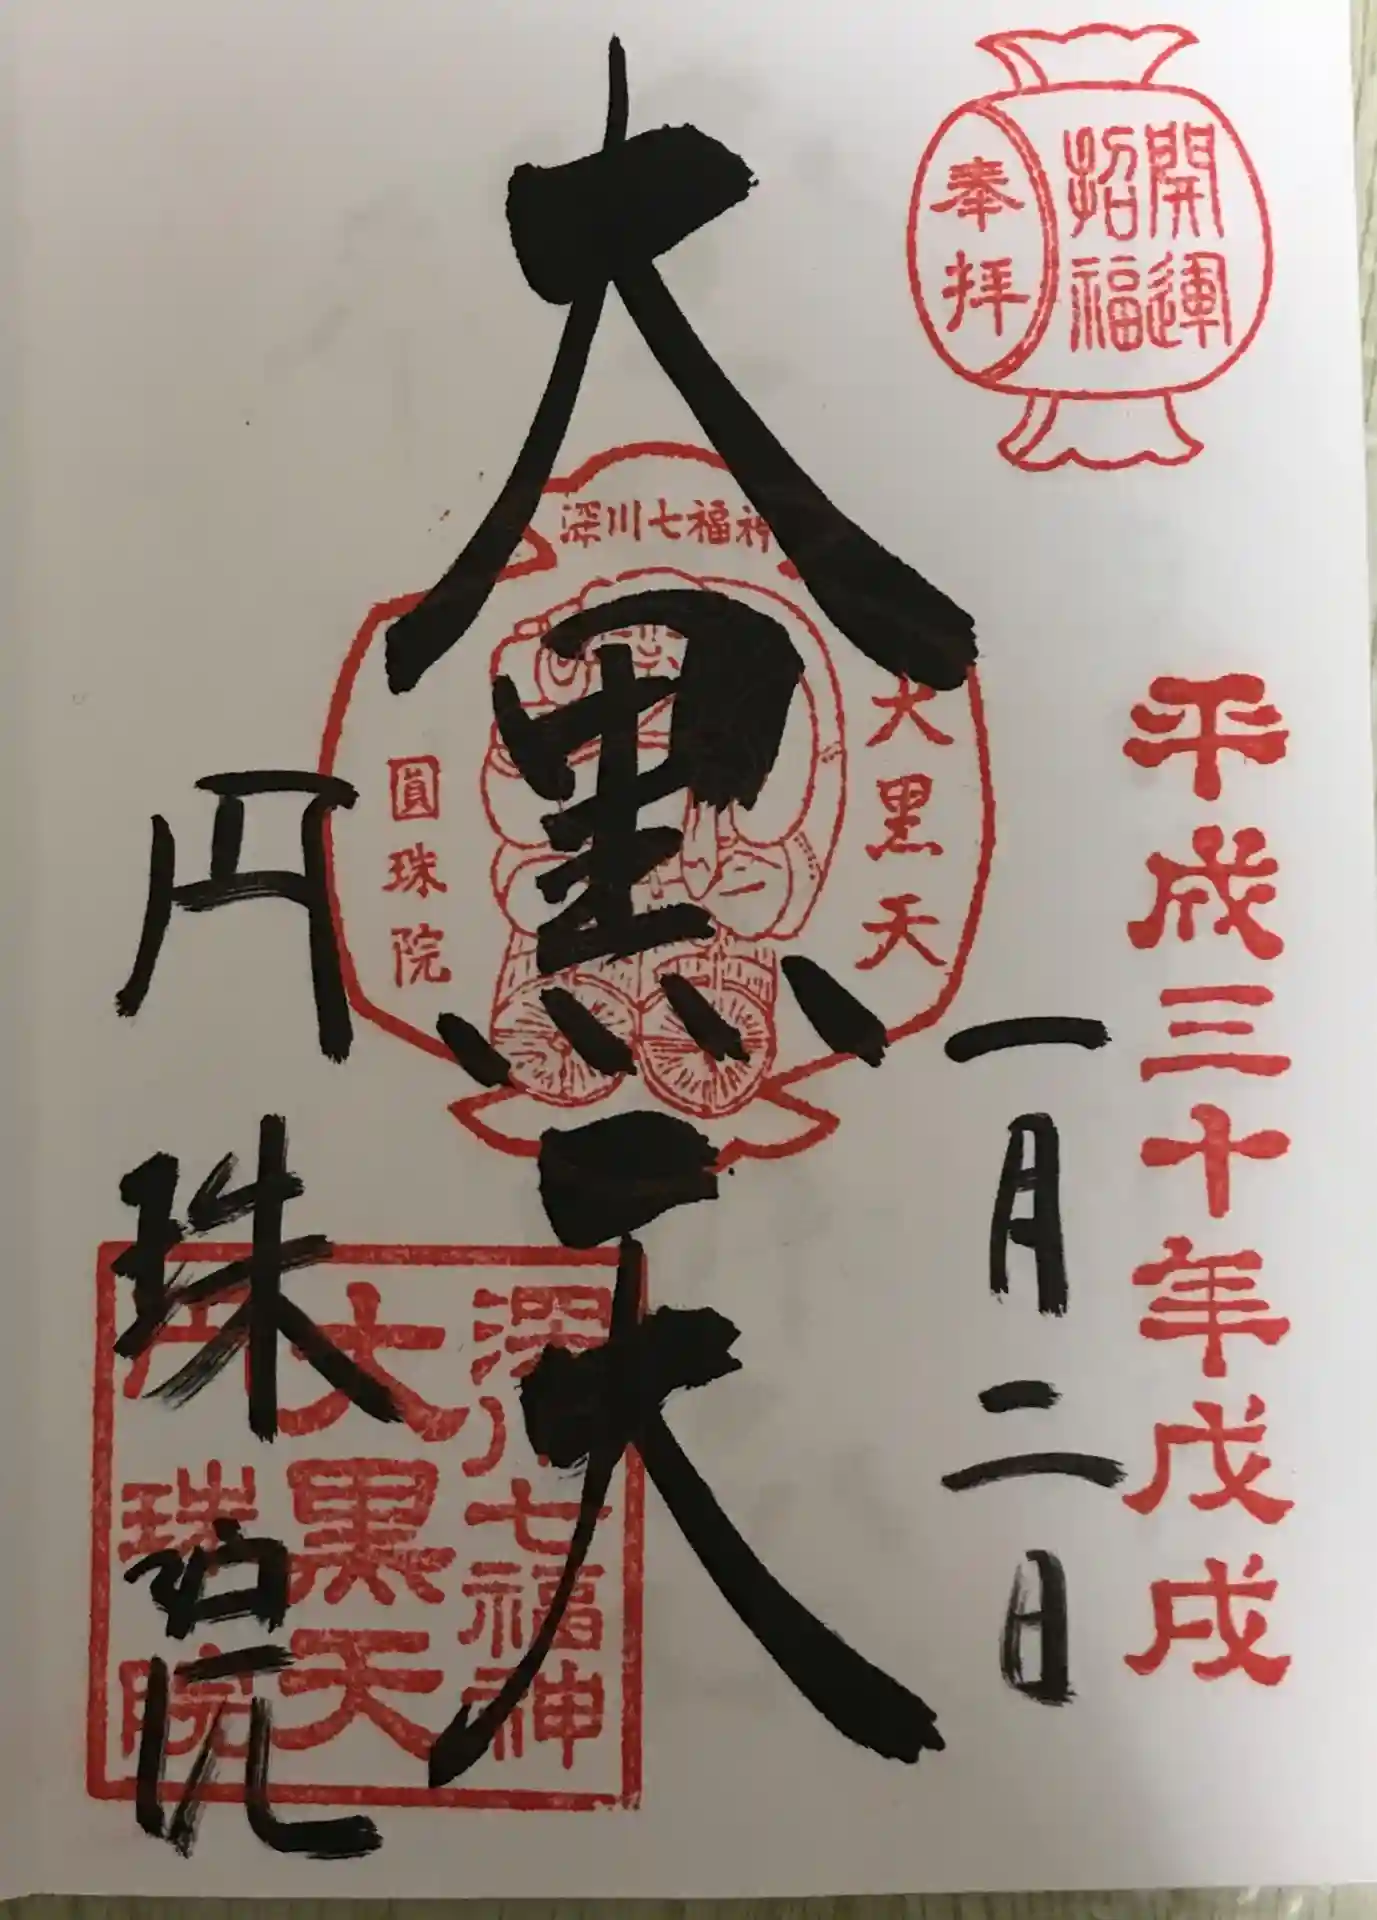 開運
招福
奉拝
平成三十年戊戌
一月二日
大黒天
深川七福神
大黒天
圓珠院
円珠院
深川七福神
大黒天
円珠院